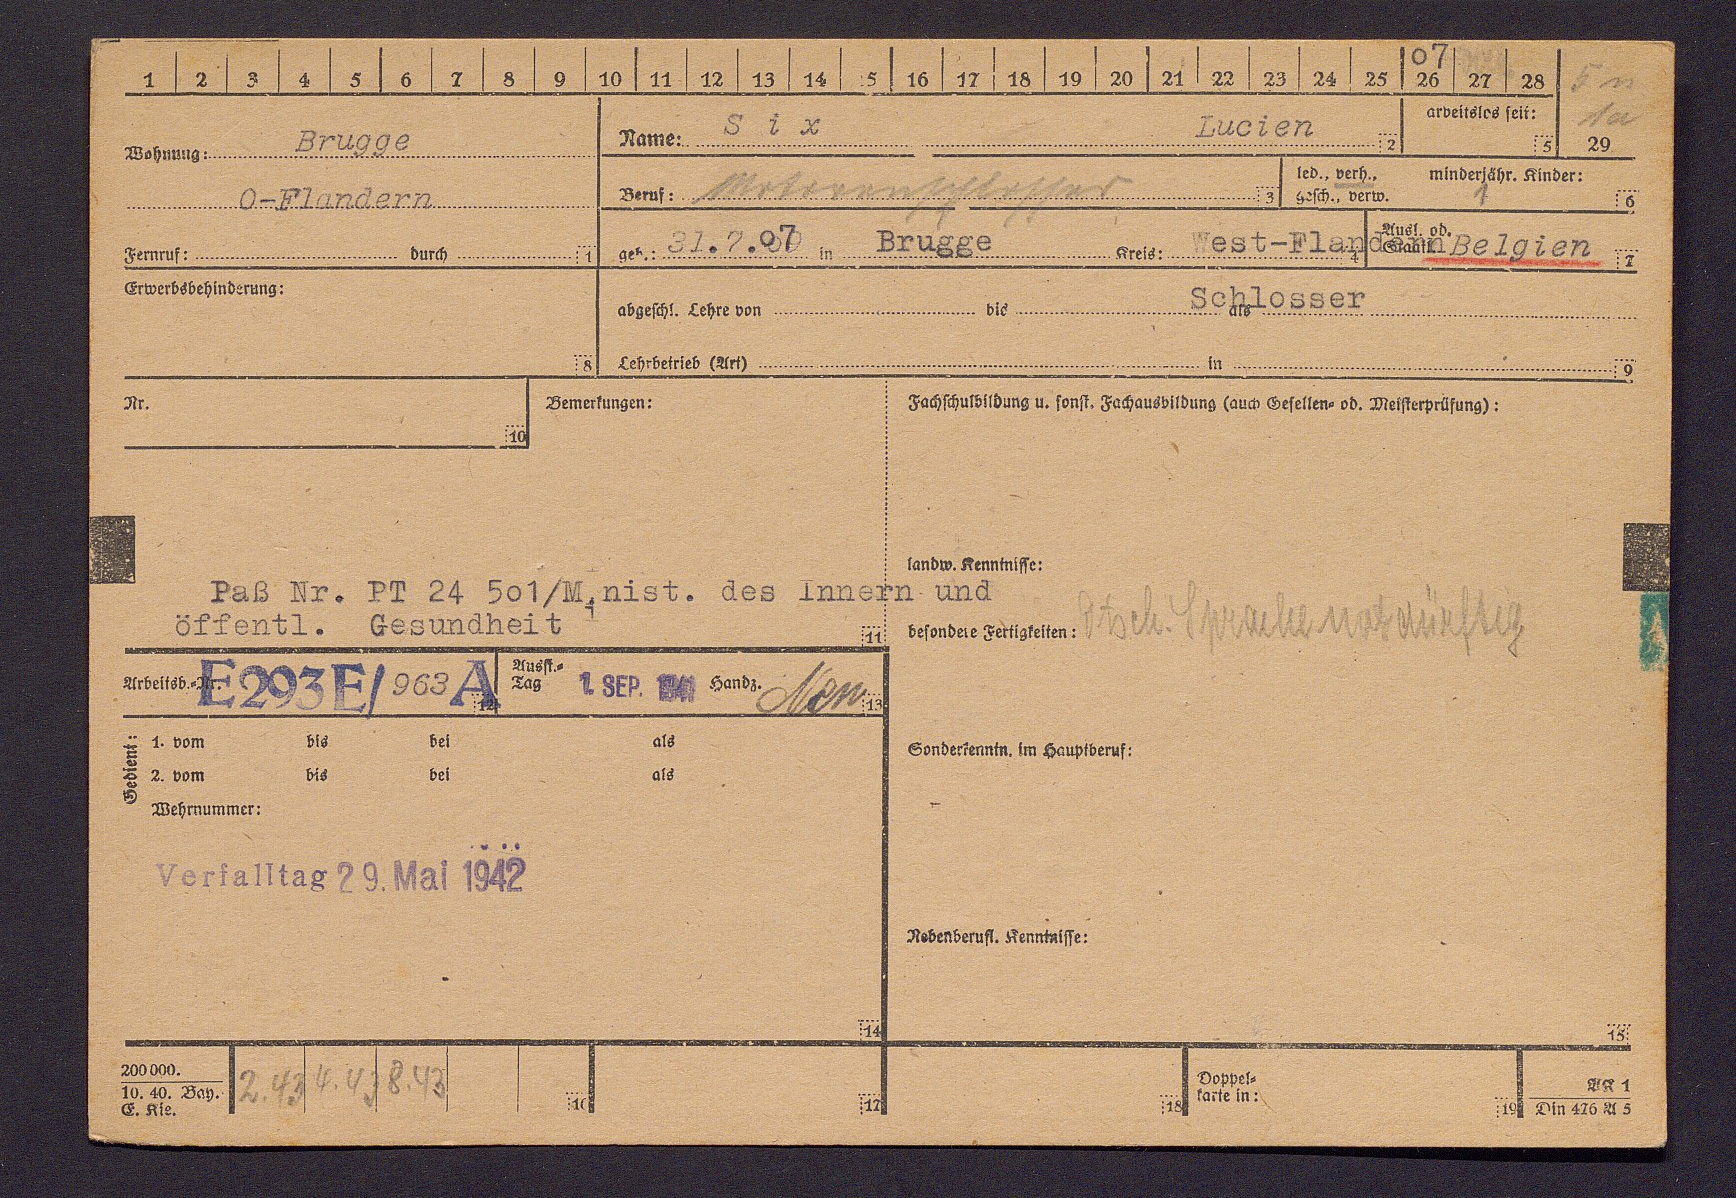 07
1 2 3 4 5 6 7 8 9 10 11 12 13 14 15 16 17 18 19 20 21 22 23 24 25 26 27 28
29
Wohnung: Brugge
O-Flandern
Fernruf: durch 1
Name: Six Lucien 2
arbeitslos seit: 5
Beruf: Motorenschlosser 3
led., verh., gesch., verw.
minderjähr. Kinder: 1 6
geb.: 31.7.07 in Brugge Kreis: West-Flandern 4
Ausl. od. Staatl. Belgien 7
Erwerbsbehinderung: 8
abgeschl. Lehre von bis als Schlosser
Lehrbetrieb (Art) in 9
Nr. 10
Bemerkungen:
Fachschulbildung u. sonst. Fachausbildung (auch Gesellen- od. Meisterprüfung):
Paß Nr. PT 24 5o1/Minist. des Innern und
öffentl. Gesundheit 11
landw. Kenntnisse:
besondere Fertigkeiten: Dtsch. Sprache notdürftig
Arbeitsb.-Nr. E293E/963A 12
Ausst.-Tag 1. SEP. 1941 Handz. 13
Gedient:
1. vom bis bei als
2. vom bis bei als
Wehrnummer:
Sonderkenntn. im Hauptberuf:
Verfalltag 29. Mai 1942
Nebenberufl. Kenntnisse:
14
15
200 000.
10. 40. Bay.
E. Kie.
2.43 4.43 8.43 16
17
18
Doppel-
karte in: 19
AK 1
Din 476 A 5